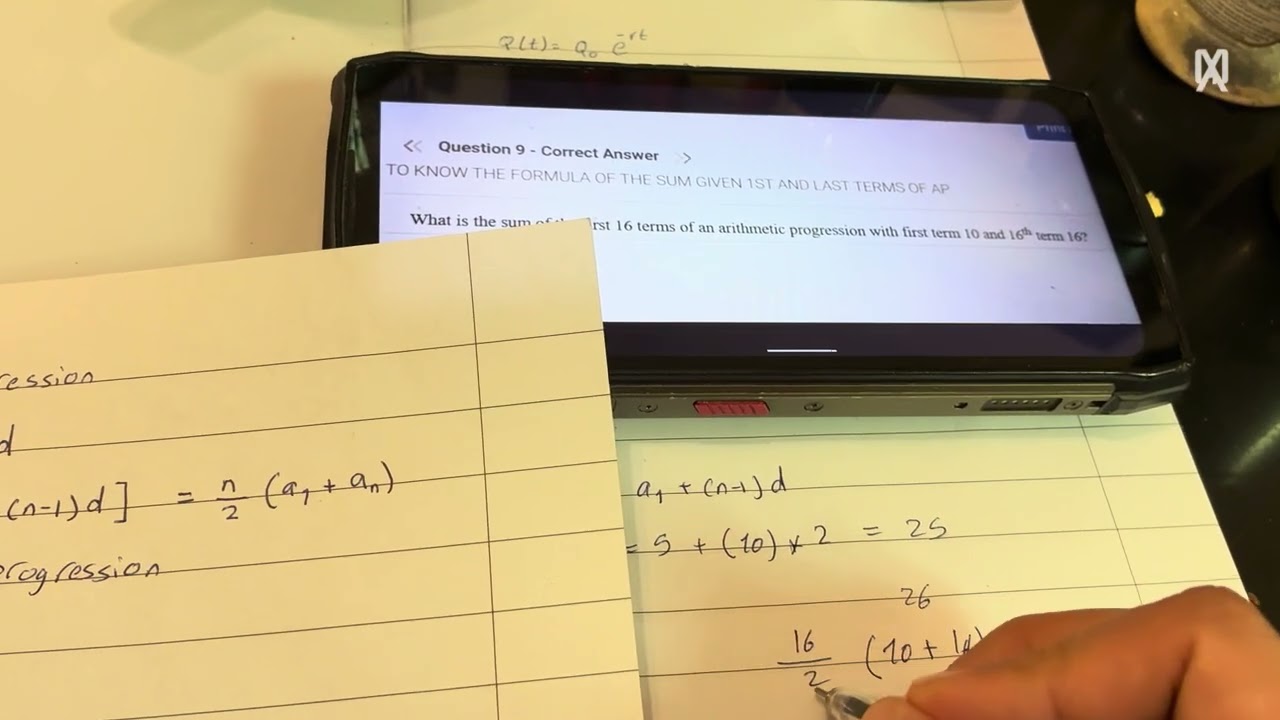 Q(t) = Q₀ e^-rt
Print
<< Question 9 - Correct Answer >>
TO KNOW THE FORMULA OF THE SUM GIVEN 1ST AND LAST TERMS OF AP
What is the sum of rst 16 terms of an arithmetic progression with first term 10 and 16th term 16?
ession
d
(n-1)d] = n/2 (a₁ + aₙ)
rogression
a₁ + (n-1)d
= 5 + (10) × 2 = 25
26
16/2 (10 + 16)